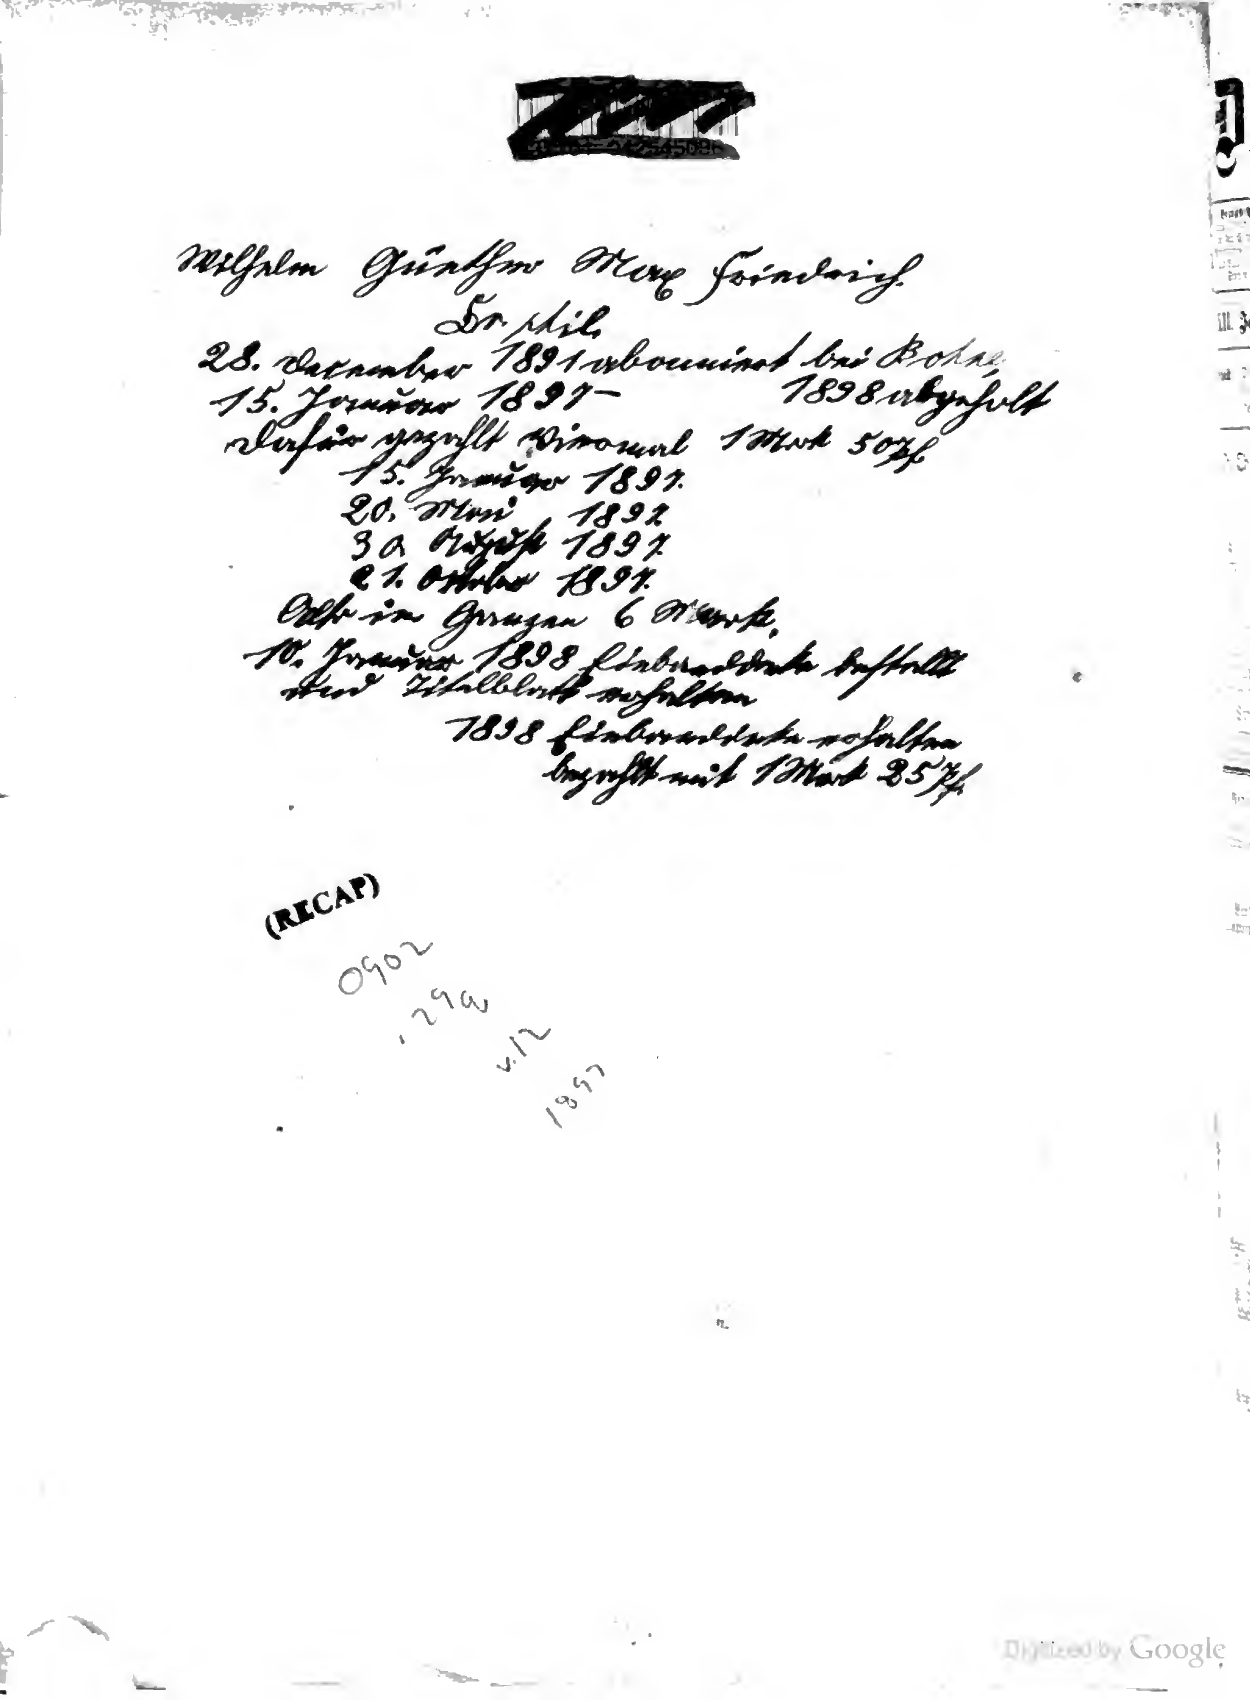 Wilhelm Günther Max Friedrich.
Dr. phil.
28. December 1891 abonniert bei
15. Januar 1897 – 1898 abgeholt
Dafür gezahlt viermal 1 Mark 50 Pf.
15. Januar 1897.
20. Mai 1897
30. August 1897.
21. October 1897.
Also im Ganzen 6 Mark.
10. Januar 1898 Einbanddecke bestellt
und Titelblatt erhalten
1898 Einbanddecke erhalten
bezahlt mit 1 Mark 25 Pf.
(RECAP)
0902
.299
v.12
1897
Digitized by Google